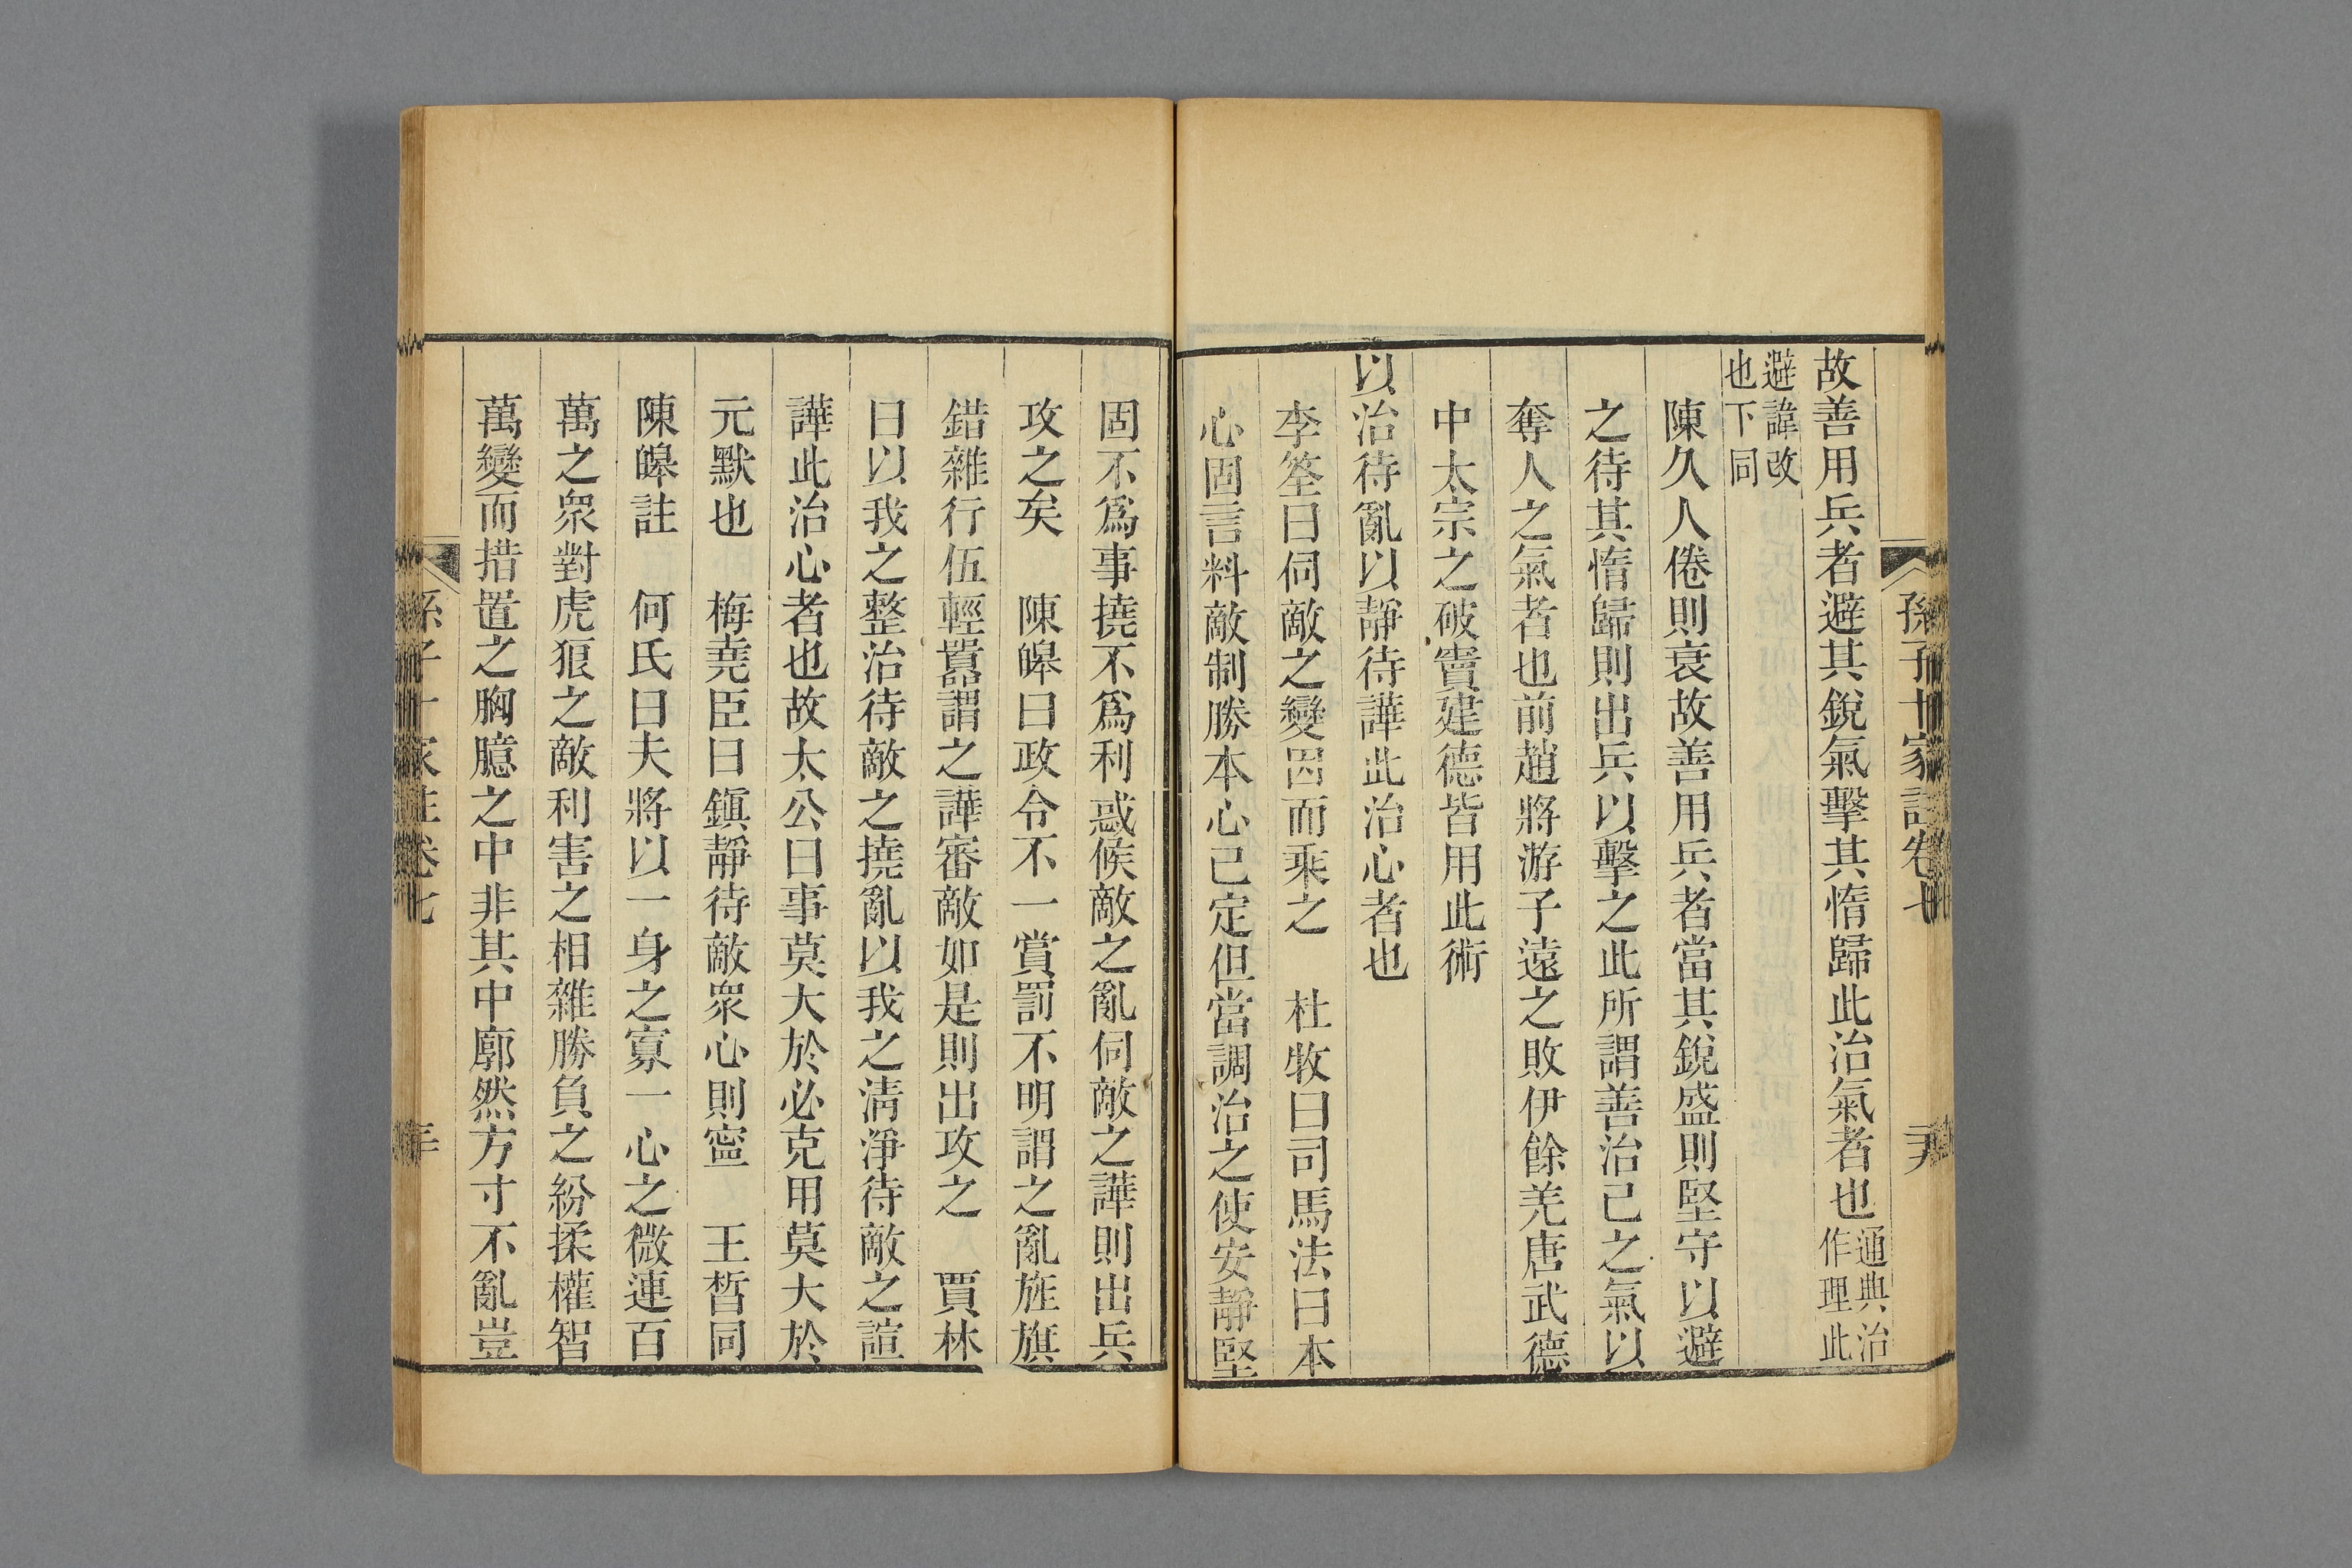 孫子十家註卷七
故善用兵者避其銳氣擊其惰歸此治氣者也通典治作理此
避諱改也下同
陳久人倦則衰故善用兵者當其銳盛則堅守以避
之待其惰歸則出兵以擊之此所謂善治己之氣以
奪人之氣者也前趙將游子遠之敗伊餘羌唐武德
中太宗之破竇建德皆用此術
以治待亂以靜待譁此治心者也
李筌曰伺敵之變因而乘之　杜牧曰司馬法曰本
心固言料敵制勝本心已定但當調治之使安靜堅
固不爲事撓不爲利惑候敵之亂伺敵之譁則出兵
攻之矣　陳皥曰政令不一賞罰不明謂之亂旌旗
錯雜行伍輕囂謂之譁審敵如是則出攻之　賈林
曰以我之整治待敵之撓亂以我之淸淨待敵之諠
譁此治心者也故太公曰事莫大於必克用莫大於
元默也　梅堯臣曰鎭靜待敵衆心則寧　王晳同
陳皥註　何氏曰夫將以一身之寡一心之微連百
萬之衆對虎狼之敵利害之相雜勝負之紛揉權智
萬變而措置之胸臆之中非其中廓然方寸不亂豈
孫子十家註卷七